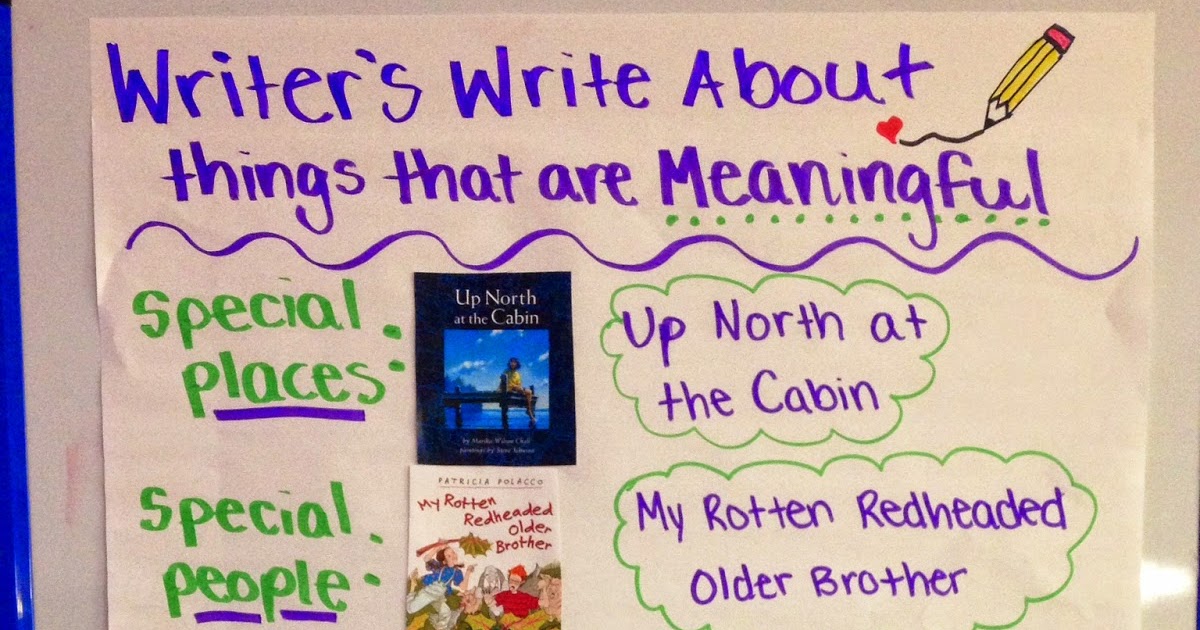 Writer's Write About
things that are Meaningful
Special
places:
Up North
at the Cabin
by Marsha Wilson Chall
paintings by Steve Johnson
Up North at
the Cabin
Special
people:
PATRICIA POLACCO
My Rotten
Redheaded
Older
Brother
My Rotten Redheaded
Older Brother